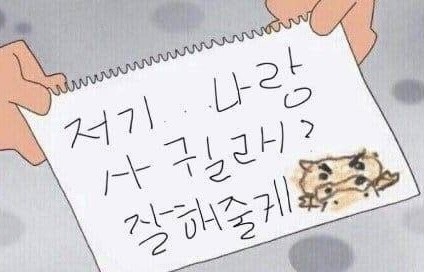 저기...나랑
사귈래?
잘해줄게